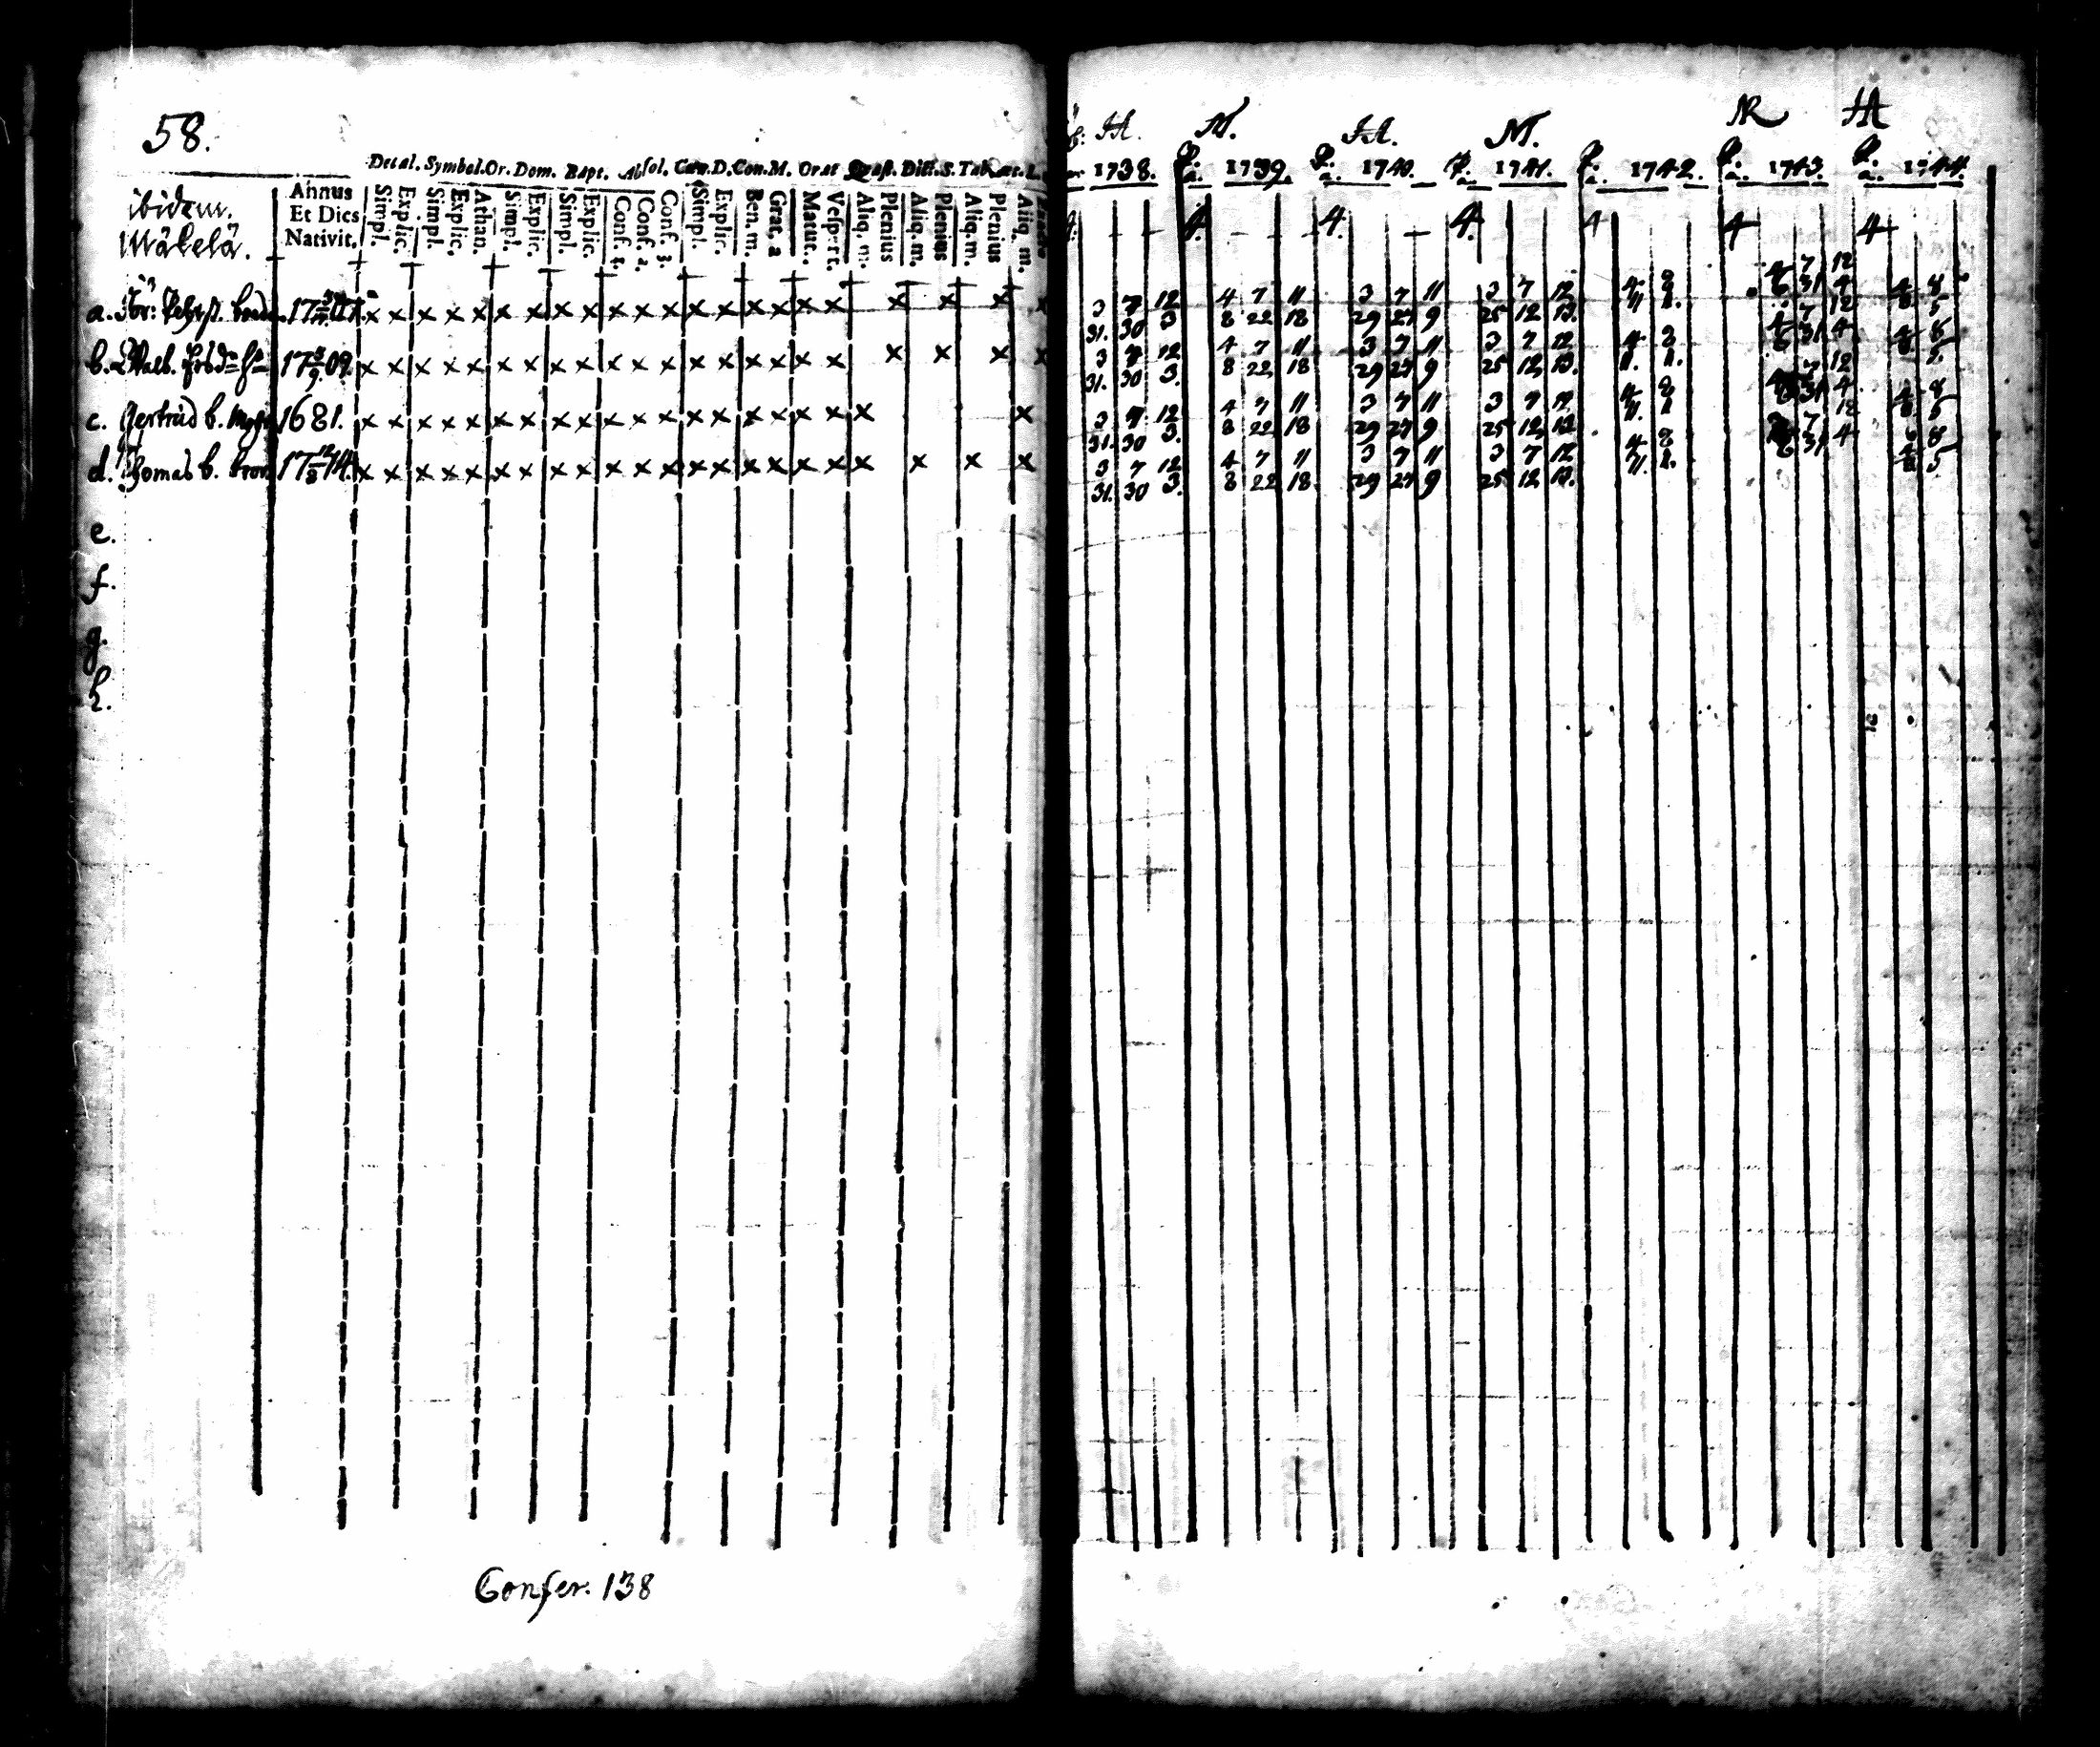 58.
Decal. Symbol. Or. Dom. Bapt. Absol. Cœn. D. Con. M. Orat Quæst. Dict. S. Tab.
ibidem.
Mäkelä.
Annus
Et Dies
Nativit.
Simpl. Explic. Simpl. Explic. Athan. Simpl. Explic. Simpl. Explic. Conf. 1. Conf. 2. Conf. 3. Simpl. Explic. Ben. m. Grat. a Matut. Vesprt. Aliq. m. Plenius Aliq. m. Plenius Aliq. m. Plenius Aliq. m.
a. x x x x x x x x x x x x x x x x x x x x x
b. 17 5/9 09. x x x x x x x x x x x x x x x x x x x x x
c. Gertrud b. 1681. x x x x x x x x x x x x x x x x x x x x
d. Thomas b. 17 12/8 14. x x x x x x x x x x x x x x x x x x x x x x
e.
f.
g.
h.
Confer. 138
H. M. H. M. R H
1738. 1739. 1740. 1741. 1742. 1743. 1744.
4. 4. 4. 4. 4 4 4
3 7 12 4 7 11 3 7 11 3 7 12 4 8 4 7 12 4 8
31. 30 3 8 22 18 29 27 9 25 12 13. 11 1. 6 31 4 8 5
3 7 12 4 7 11 3 7 11 3 7 12 4 8 4 7 12 4 8
31. 30 3. 8 22 18 29 27 9 25 12 13. 11. 1. 6 31 4 8 5.
3 7 12 4 7 11 3 7 11 3 7 12 4 8 7 12 4 8
31. 30 3. 8 22 18 29 27 9 25 12 13 11. 1 31 4 8 5
3 7 12 4 7 11 3 7 11 3 7 12 4 8 7 12 4 8
31. 30 3. 8 22 18. 29 27 9 25 12 13. 11. 1. 6 31 4 8 5